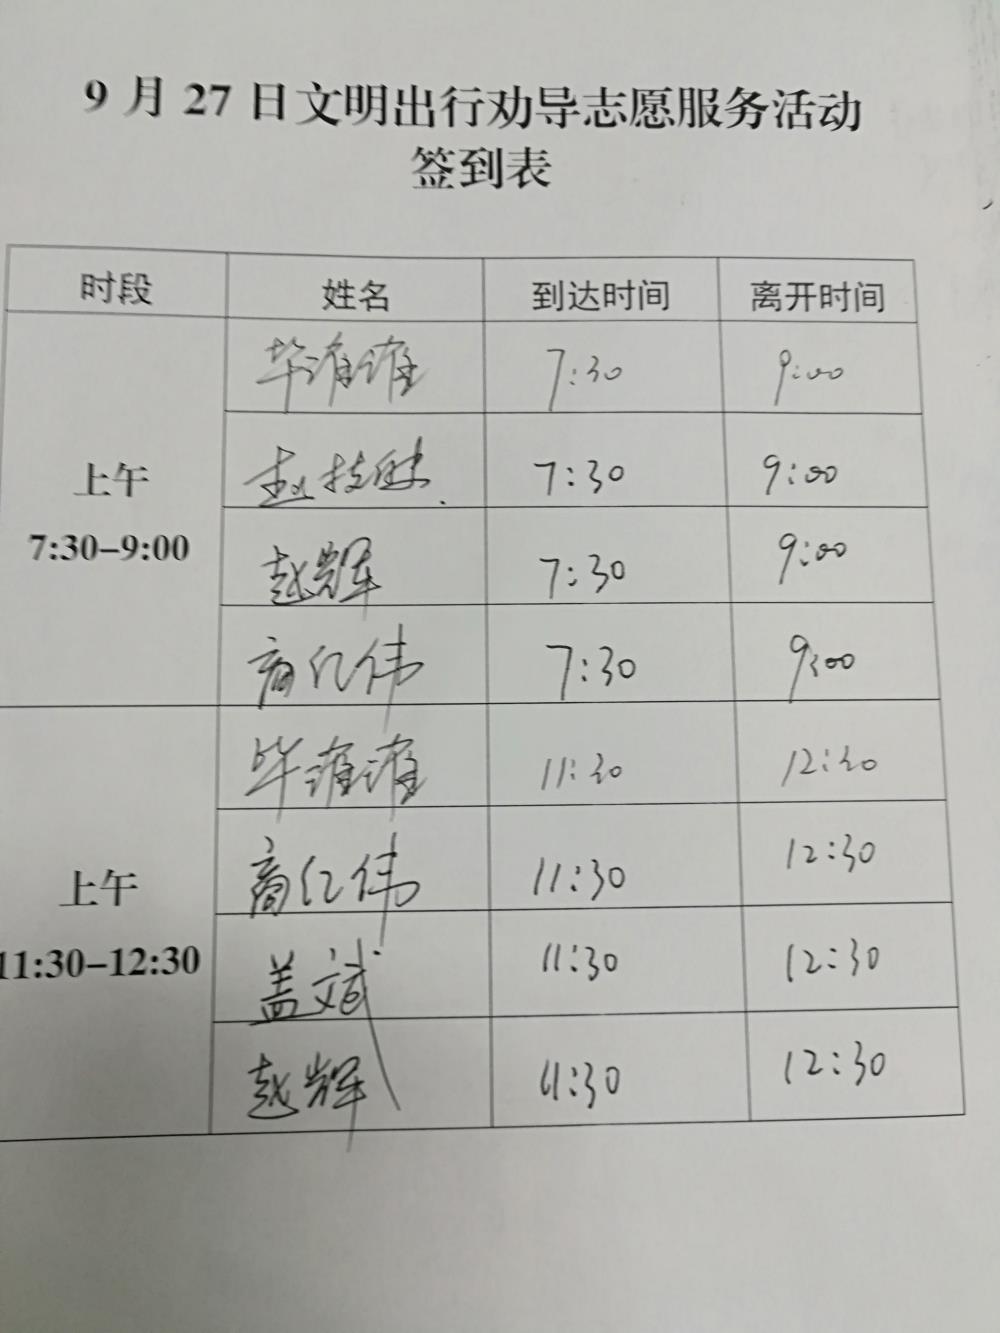 9 月 27 日文明出行劝导志愿服务活动
签到表
时段 姓名 到达时间 离开时间
上午
7:30-9:00
毕谁谁 7:30 9:00
7:30 9:00
赵辉 7:30 9:00
商亿伟 7:30 9:00
上午
11:30-12:30
毕谁谁 11:30 12:30
商亿伟 11:30 12:30
盖斌 11:30 12:30
赵辉 11:30 12:30